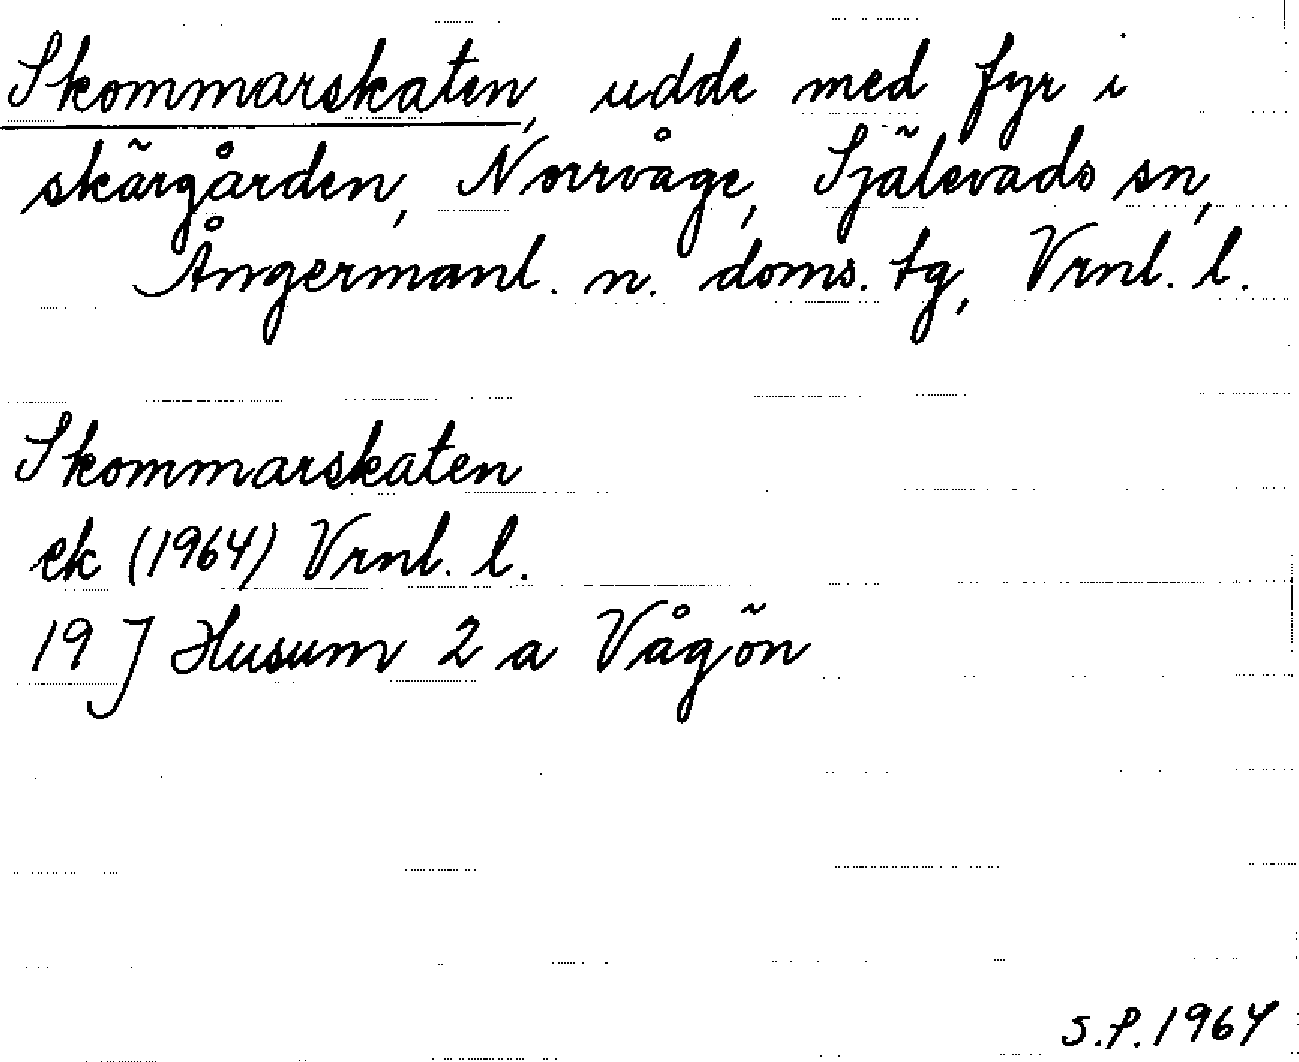 Skommarskaten, udde med fyr i
skärgården, Norrvåge, Själevads sn,
Ångermanl. n. doms. tg, Vrnl. l.
Skommarskaten
ek (1964) Vrnl. l.
19 J Husum 2 a Vågön
S.P. 1964